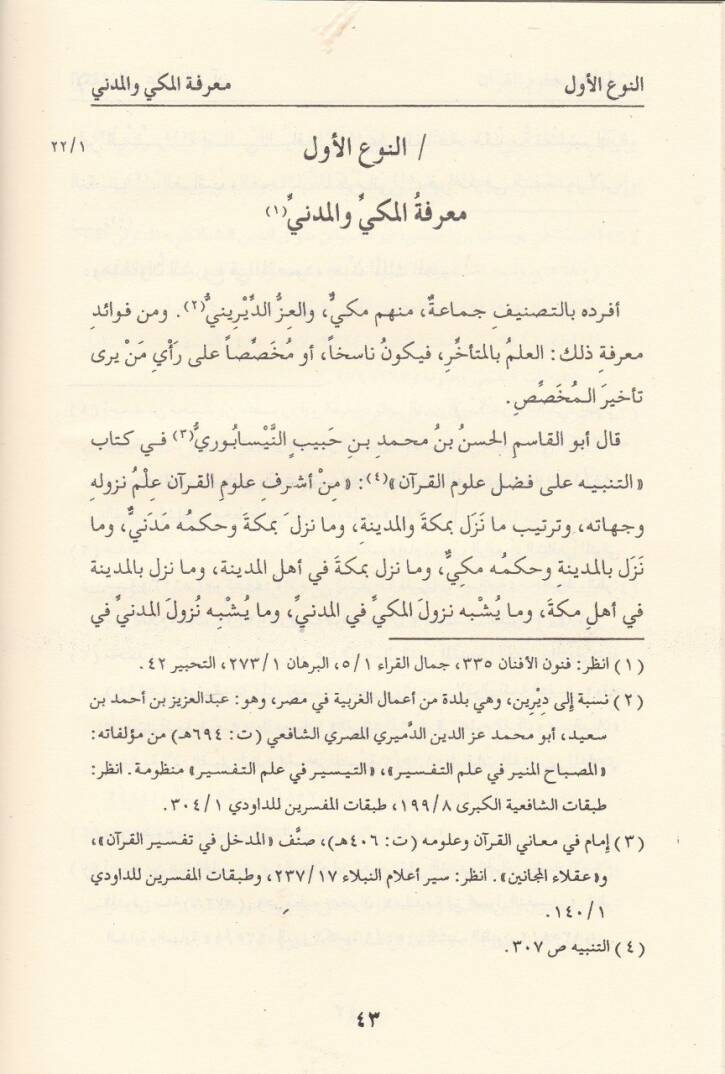 النوع الأول معرفة المكي والمدني
/ النوع الأول ٢٢/١
معرفةُ المكيِّ والمدنيِّ(١)
أفرده بالتصنيفِ جماعةٌ، منهم مكيٌّ، والعِزُّ الدِّيْرِينيُّ(٢). ومن فوائدِ
معرفةِ ذلك: العلمُ بالمتأخِّرِ، فيكونُ ناسخاً، أو مُخَصِّصاً على رَأْيِ مَنْ يرى
تأخيرَ المُخَصِّصِ.
قال أبو القاسمِ الحسنُ بنُ محمدِ بنِ حَبيبٍ النَّيْسابُوريُّ(٣) في كتاب
«التنبيه على فضل علوم القرآن»(٤): «مِنْ أشرفِ علومِ القرآن عِلْمُ نزولِه
وجهاته، وترتيب ما نَزَل بمكةَ والمدينةِ، وما نزلَ بمكةَ وحكمُه مَدَنيٌّ، وما
نَزَل بالمدينةِ وحكمُه مكيٌّ، وما نزل بمكةَ في أهل المدينة، وما نزل بالمدينة
في أهلِ مكةَ، وما يُشْبه نزولَ المكيِّ في المدنيِّ، وما يُشْبِه نُزولَ المدنيِّ في
(١) انظر: فنون الأفنان ٣٣٥، جمال القراء ٥/١، البرهان ٢٧٣/١، التحبير ٤٢.
(٢) نسبة إلى دِيْرِين، وهي بلدة من أعمال الغربية في مصر، وهو: عبدالعزيز بن أحمد بن
سعيد، أبو محمد عز الدين الدَّميري المصري الشافعي (ت: ٦٩٤هـ) من مؤلفاته:
«المصباح المنير في علم التفسير»، «التيسير في علم التفسير» منظومة. انظر:
طبقات الشافعية الكبرى ١٩٩/٨، طبقات المفسرين للداودي ٣٠٤/١.
(٣) إمام في معاني القرآن وعلومه (ت: ٤٠٦هـ)، صنَّف «المدخل في تفسير القرآن»،
و«عقلاء المجانين». انظر: سير أعلام النبلاء ٢٣٧/١٧، وطبقات المفسرين للداودي
١٤٠/١.
(٤) التنبيه ص ٣٠٧.
٤٣